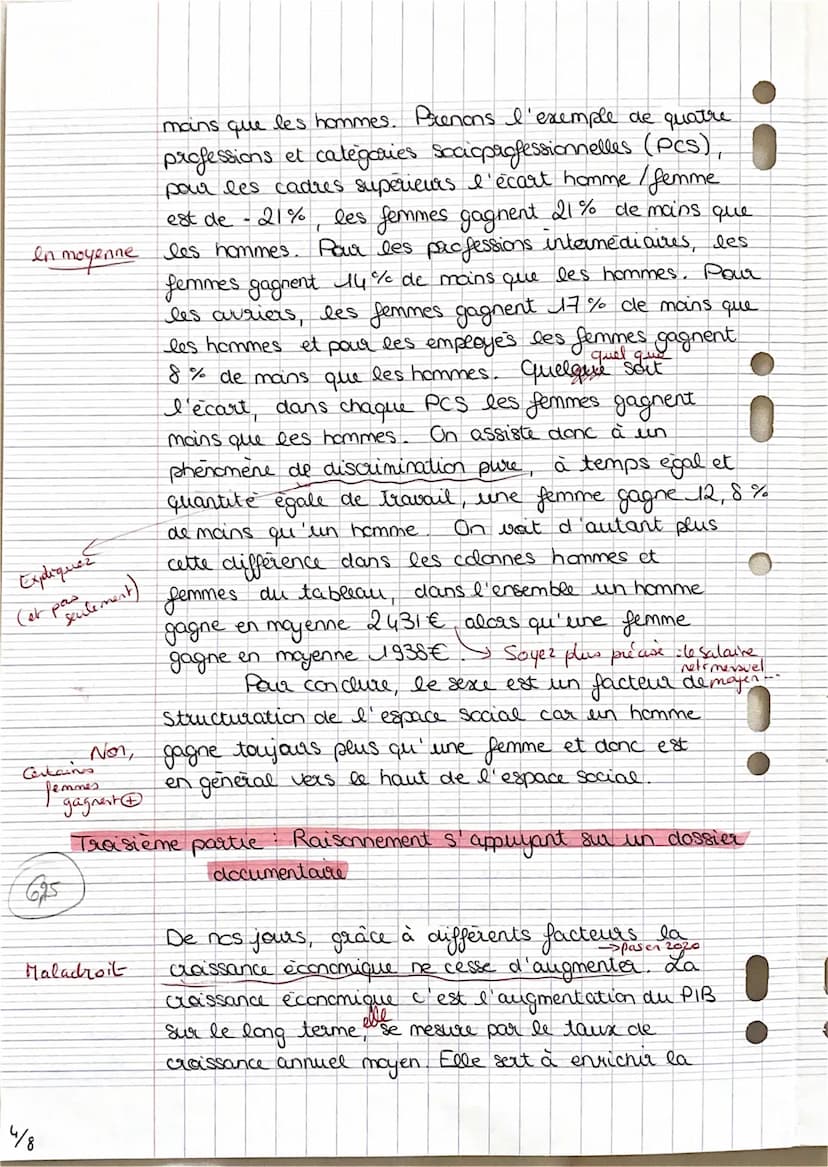 moins que les hommes. Prenons l'exemple de quatre
professions et catégories socioprofessionnelles (PCS),
pour les cadres supérieurs l'écart homme / femme
est de - 21%, les femmes gagnent 21% de moins que
en moyenne
les hommes. Pour les professions intermédiaires, les
femmes gagnent 14% de moins que les hommes. Pour
les ouvriers, les femmes gagnent 17% de moins que
les hommes et pour les employés les femmes gagnent
quel que
8% de moins que les hommes. Quelque soit
l'écart, dans chaque PCS les femmes gagnent
moins que les hommes. On assiste donc à un
phénomène de discrimination pure, à temps égal et
quantité égale de travail, une femme gagne 12,8%
de moins qu'un homme. On voit d'autant plus
Expliquez
(et pas seulement)
cette différence dans les colonnes hommes et
femmes du tableau, dans l'ensemble un homme
gagne en moyenne 2431€, alors qu'une femme
gagne en moyenne 1938€. → Soyez plus précise : le salaire
net mensuel
moyen...
Pour conclure, le sexe est un facteur de
structuration de l'espace social car un homme
Non,
certaines
femmes
gagnent ⊕
gagne toujours plus qu'une femme et donc est
en général vers le haut de l'espace social.
Troisième partie : Raisonnement s'appuyant sur un dossier
documentaire
6,25
De nos jours, grâce à différents facteurs la
→ pas en 2020
Maladroit
croissance économique ne cesse d'augmenter. La
croissance économique c'est l'augmentation du PIB
elle
sur le long terme, se mesure par le taux de
croissance annuel moyen. Elle sert à enrichir la
4/8